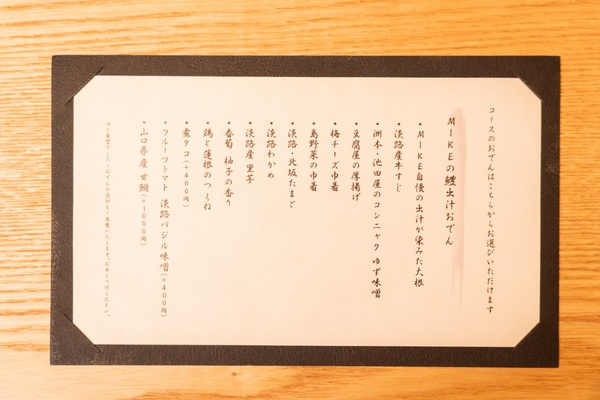 コースのおでんはこちらからお選びいただけます
MIKEの鱧出汁おでん
・MIKE自慢の出汁が染みた大根
・淡路産牛すじ
・洲本・池田屋のコンニャク ゆず味噌
・豆腐屋の厚揚げ
・梅チーズ巾着
・島野菜の巾着
・淡路・北坂たまご
・淡路わかめ
・淡路産里芋
・春菊 柚子の香り
・鶏と蓮根のつくね
・煮タコ(+400円)
・フルーツトマト 淡路バジル味噌(+400円)
・山口県産 甘鯛(+1600円)